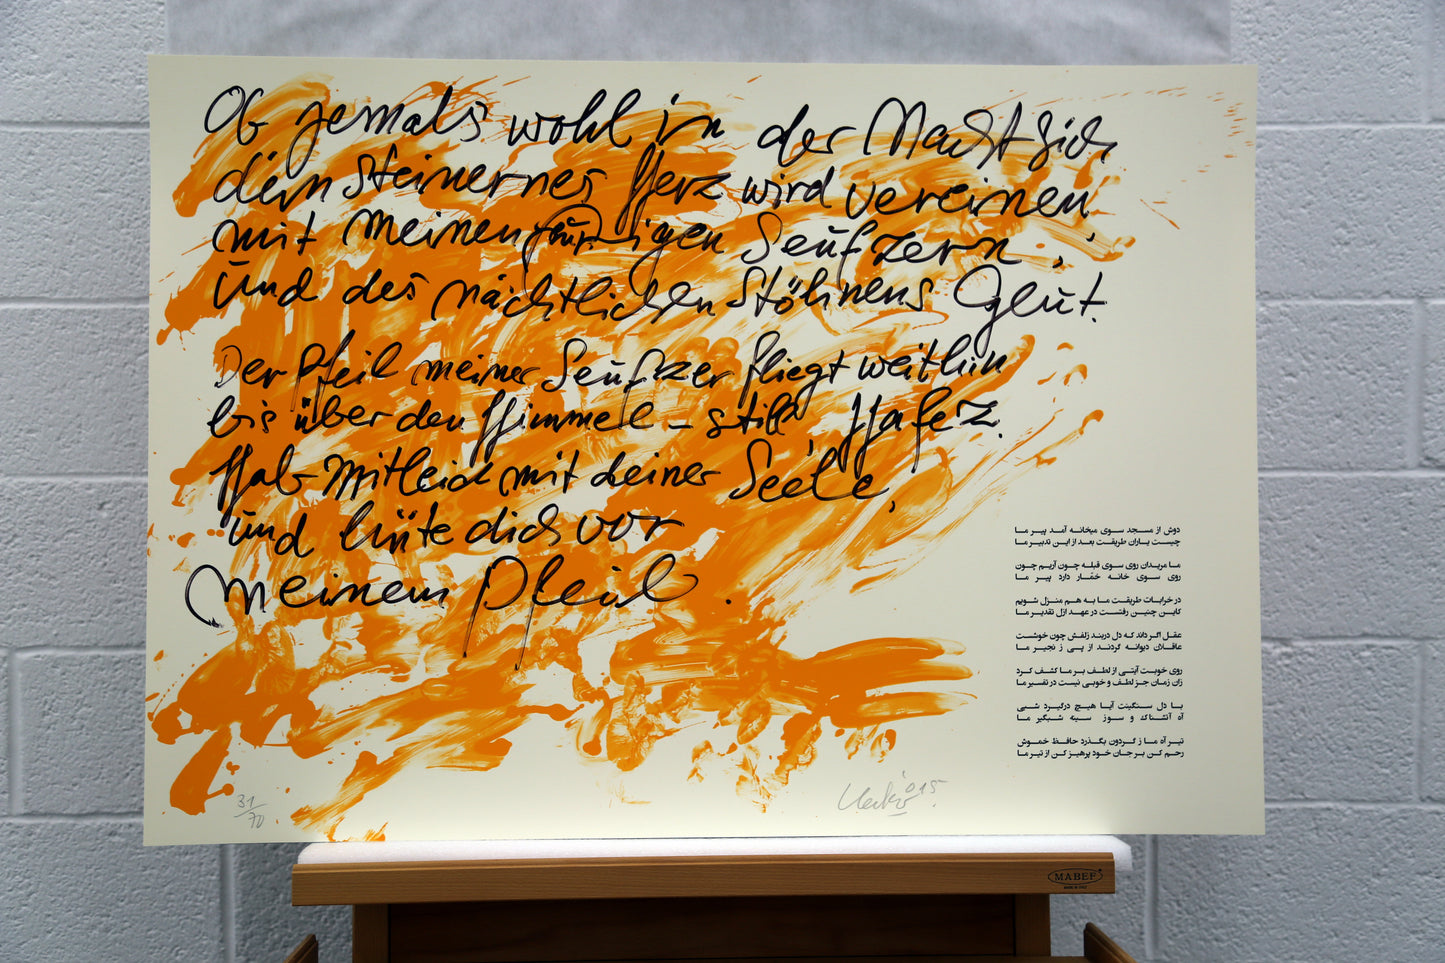 Ob jemals wohl in der Nacht sich
dein steinernes Herz wird vereinen,
mit meinen feurigen Seufzern,
und des nächtlichen Stöhnens Glut.
Der Pfeil meiner Seufzer fliegt weithin
bis über den Himmel – still, Hafez.
Hab Mitleid mit deiner Seele,
und hüte dich vor
meinem Pfeil.
دوش از مسجد سوی میخانه آمد پیر ما
چیست یاران طریقت بعد از این تدبیر ما
ما مریدان روی سوی قبله چون آریم چون
روی سوی خانه خمّار دارد پیر ما
در خرابات طریقت ما به هم منزل شویم
کاین چنین رفتست در عهد ازل تقدیر ما
عقل اگر داند که دل دربند زلفش چون خوشست
عاقلان دیوانه گردند از پی ز نجیر ما
روی خوبت آیتی از لطف بر ما کشف کرد
زان زمان جز لطف و خوبی نیست در تفسیر ما
با دل سنگینت آیا هیچ درگیرد شبی
آه آتشناک و سوز سینه شبگیر ما
تیر آه ما ز گردون بگذرد حافظ خموش
رحم کن بر جان خود پرهیز کن از تیر ما
31/70
'015
MABEF